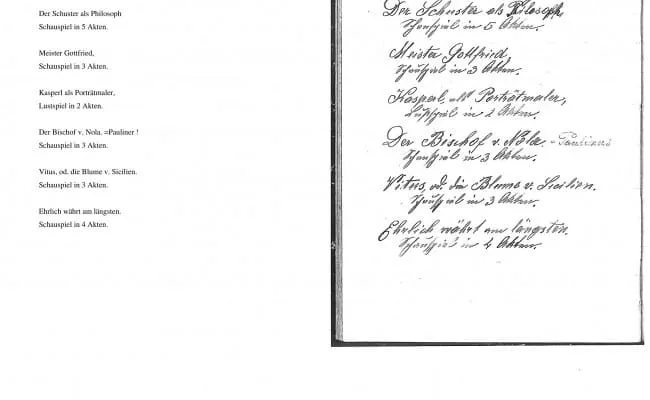 Der Schuster als Philosoph
Schauspiel in 5 Akten.
Meister Gottfried,
Schauspiel in 3 Akten.
Kasperl als Porträtmaler,
Lustspiel in 2 Akten.
Der Bischof v. Nola. =Pauliner !
Schauspiel in 3 Akten.
Vitus, od. die Blume v. Sicilien.
Schauspiel in 3 Akten.
Ehrlich währt am längsten.
Schauspiel in 4 Akten.
Der Schuster als Philosoph
Schauspiel in 5 Akten.
Meister Gottfried,
Schauspiel in 3 Akten.
Kasperl, als Porträtmaler,
Lustspiel in 2 Akten.
Der Bischof v. Nola. =Pauliner!
Schauspiel in 3 Akten.
Vitus, od. die Blume v. Sicilien.
Schauspiel in 3 Akten.
Ehrlich währt am längsten.
Schauspiel in 4 Akten.